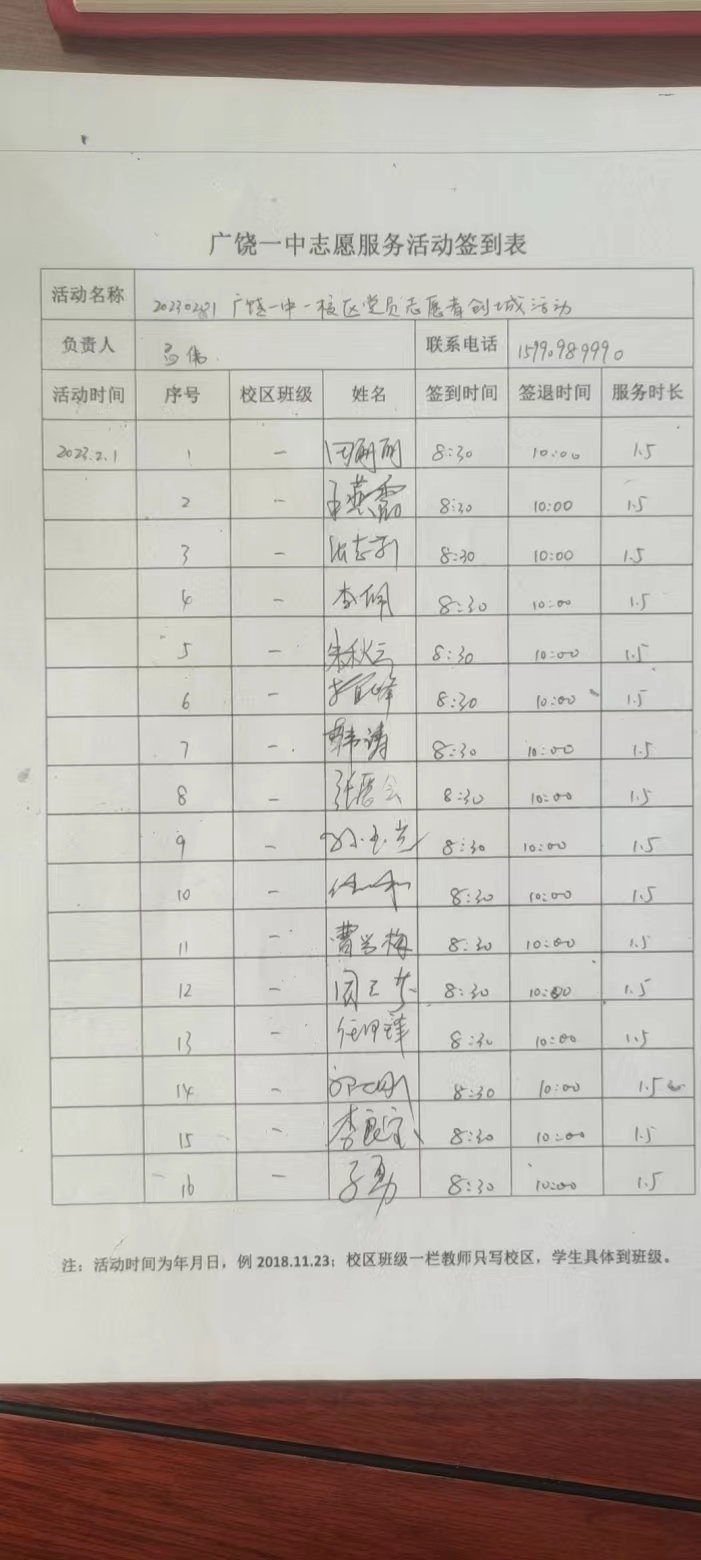 广饶一中志愿服务活动签到表
活动名称 20230201 广饶一中一校区党员志愿者创城活动
负责人 联系电话 15990989990
活动时间 序号 校区班级 姓名 签到时间 签退时间 服务时长
2023.2.1 1 一 8:30 10:00 1.5
2 一 王燕霞 8:30 10:00 1.5
3 一 8:30 10:00 1.5
4 一 李佩 8:30 10:00 1.5
5 一 朱秋云 8:30 10:00 1.5
6 一 8:30 10:00 1.5
7 一 韩涛 8:30 10:00 1.5
8 一 8:30 10:00 1.5
9 一 8:30 10:00 1.5
10 一 8:30 10:00 1.5
11 一 8:30 10:00 1.5
12 一 8:30 10:00 1.5
13 一 8:30 10:00 1.5
14 一 8:30 10:00 1.5
15 一 李良宝 8:30 10:00 1.5
16 一 8:30 10:00 1.5
注：活动时间为年月日，例 2018.11.23；校区班级一栏教师只写校区，学生具体到班级。